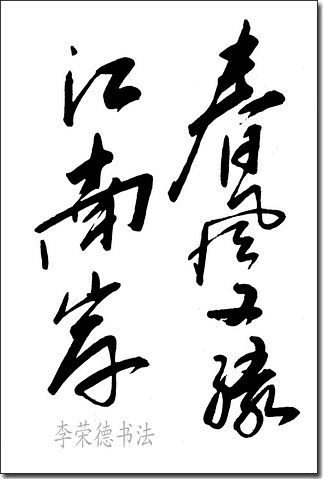 春风又绿
江南岸
李荣德书法